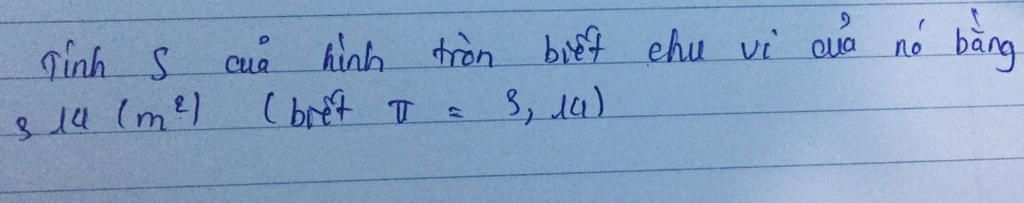 Tính S của hình tròn biết chu vi của nó bằng
3 14 (m²) (biết π = 3,14)